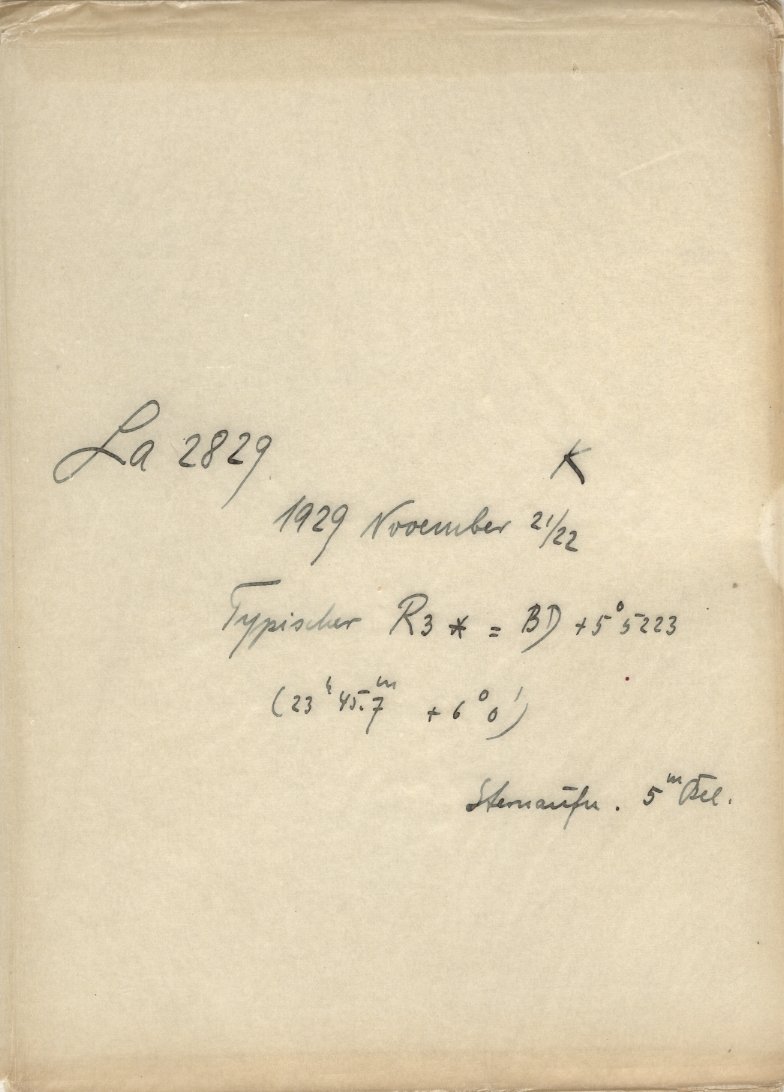 La 2829 K
1929 November 21/22
Typischer R3 * = BD +5° 5223
(23ʰ 45.7ᵐ +6° 0')
Sternaufn. 5ᵐ Bel.